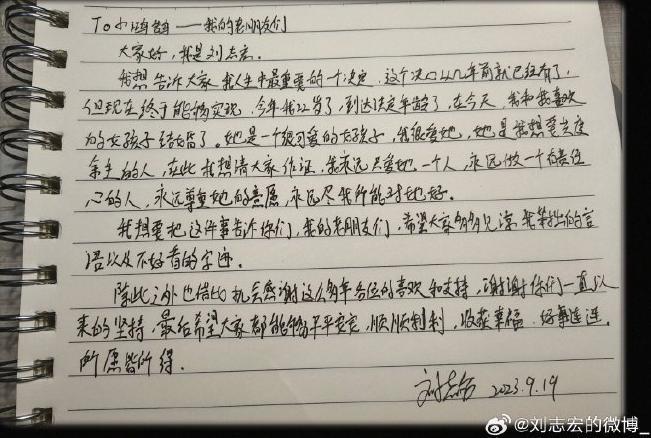 To 小鸿鹄——我的老朋友们
大家好，我是刘志宏。
我想告诉大家我人生中最重要的一个决定，这个决定几年前就已经有了，
但现在终于能够实现，今年我22岁了，到达法定年龄了，在今天，我和我喜欢
的女孩子结婚了。她是一个很可爱的女孩子，我很爱她，她是我想要共度
余生的人，在此我想请大家作证，我永远只爱她一个人，永远做一个有责任
心的人，永远尊重她的意愿，永远尽我所能对她好。
我想要把这件事告诉你们，我的老朋友们，希望大家多多见谅我笨拙的言
语以及不好看的字迹。
除此之外也借此机会感谢这么多年各位的喜欢和支持，谢谢你们一直以
来的坚持，最后希望大家都能够平平安安，顺顺利利，收获幸福，好事连连，
所愿皆所得。
刘志宏 2023.9.19
@刘志宏的微博_